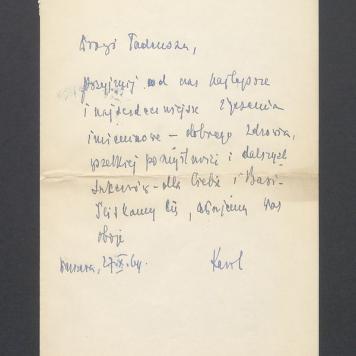 Drogi Tadeuszu,
przyjmij od nas najlepsze
i najserdeczniejsze życzenia
imieninowe – dobrego zdrowia,
wszelkiej pomyślności i dalszych
sukcesów – dla Ciebie i Basi –
Ściskamy Cię, Was
oboje
27 IX. 64.
Karol